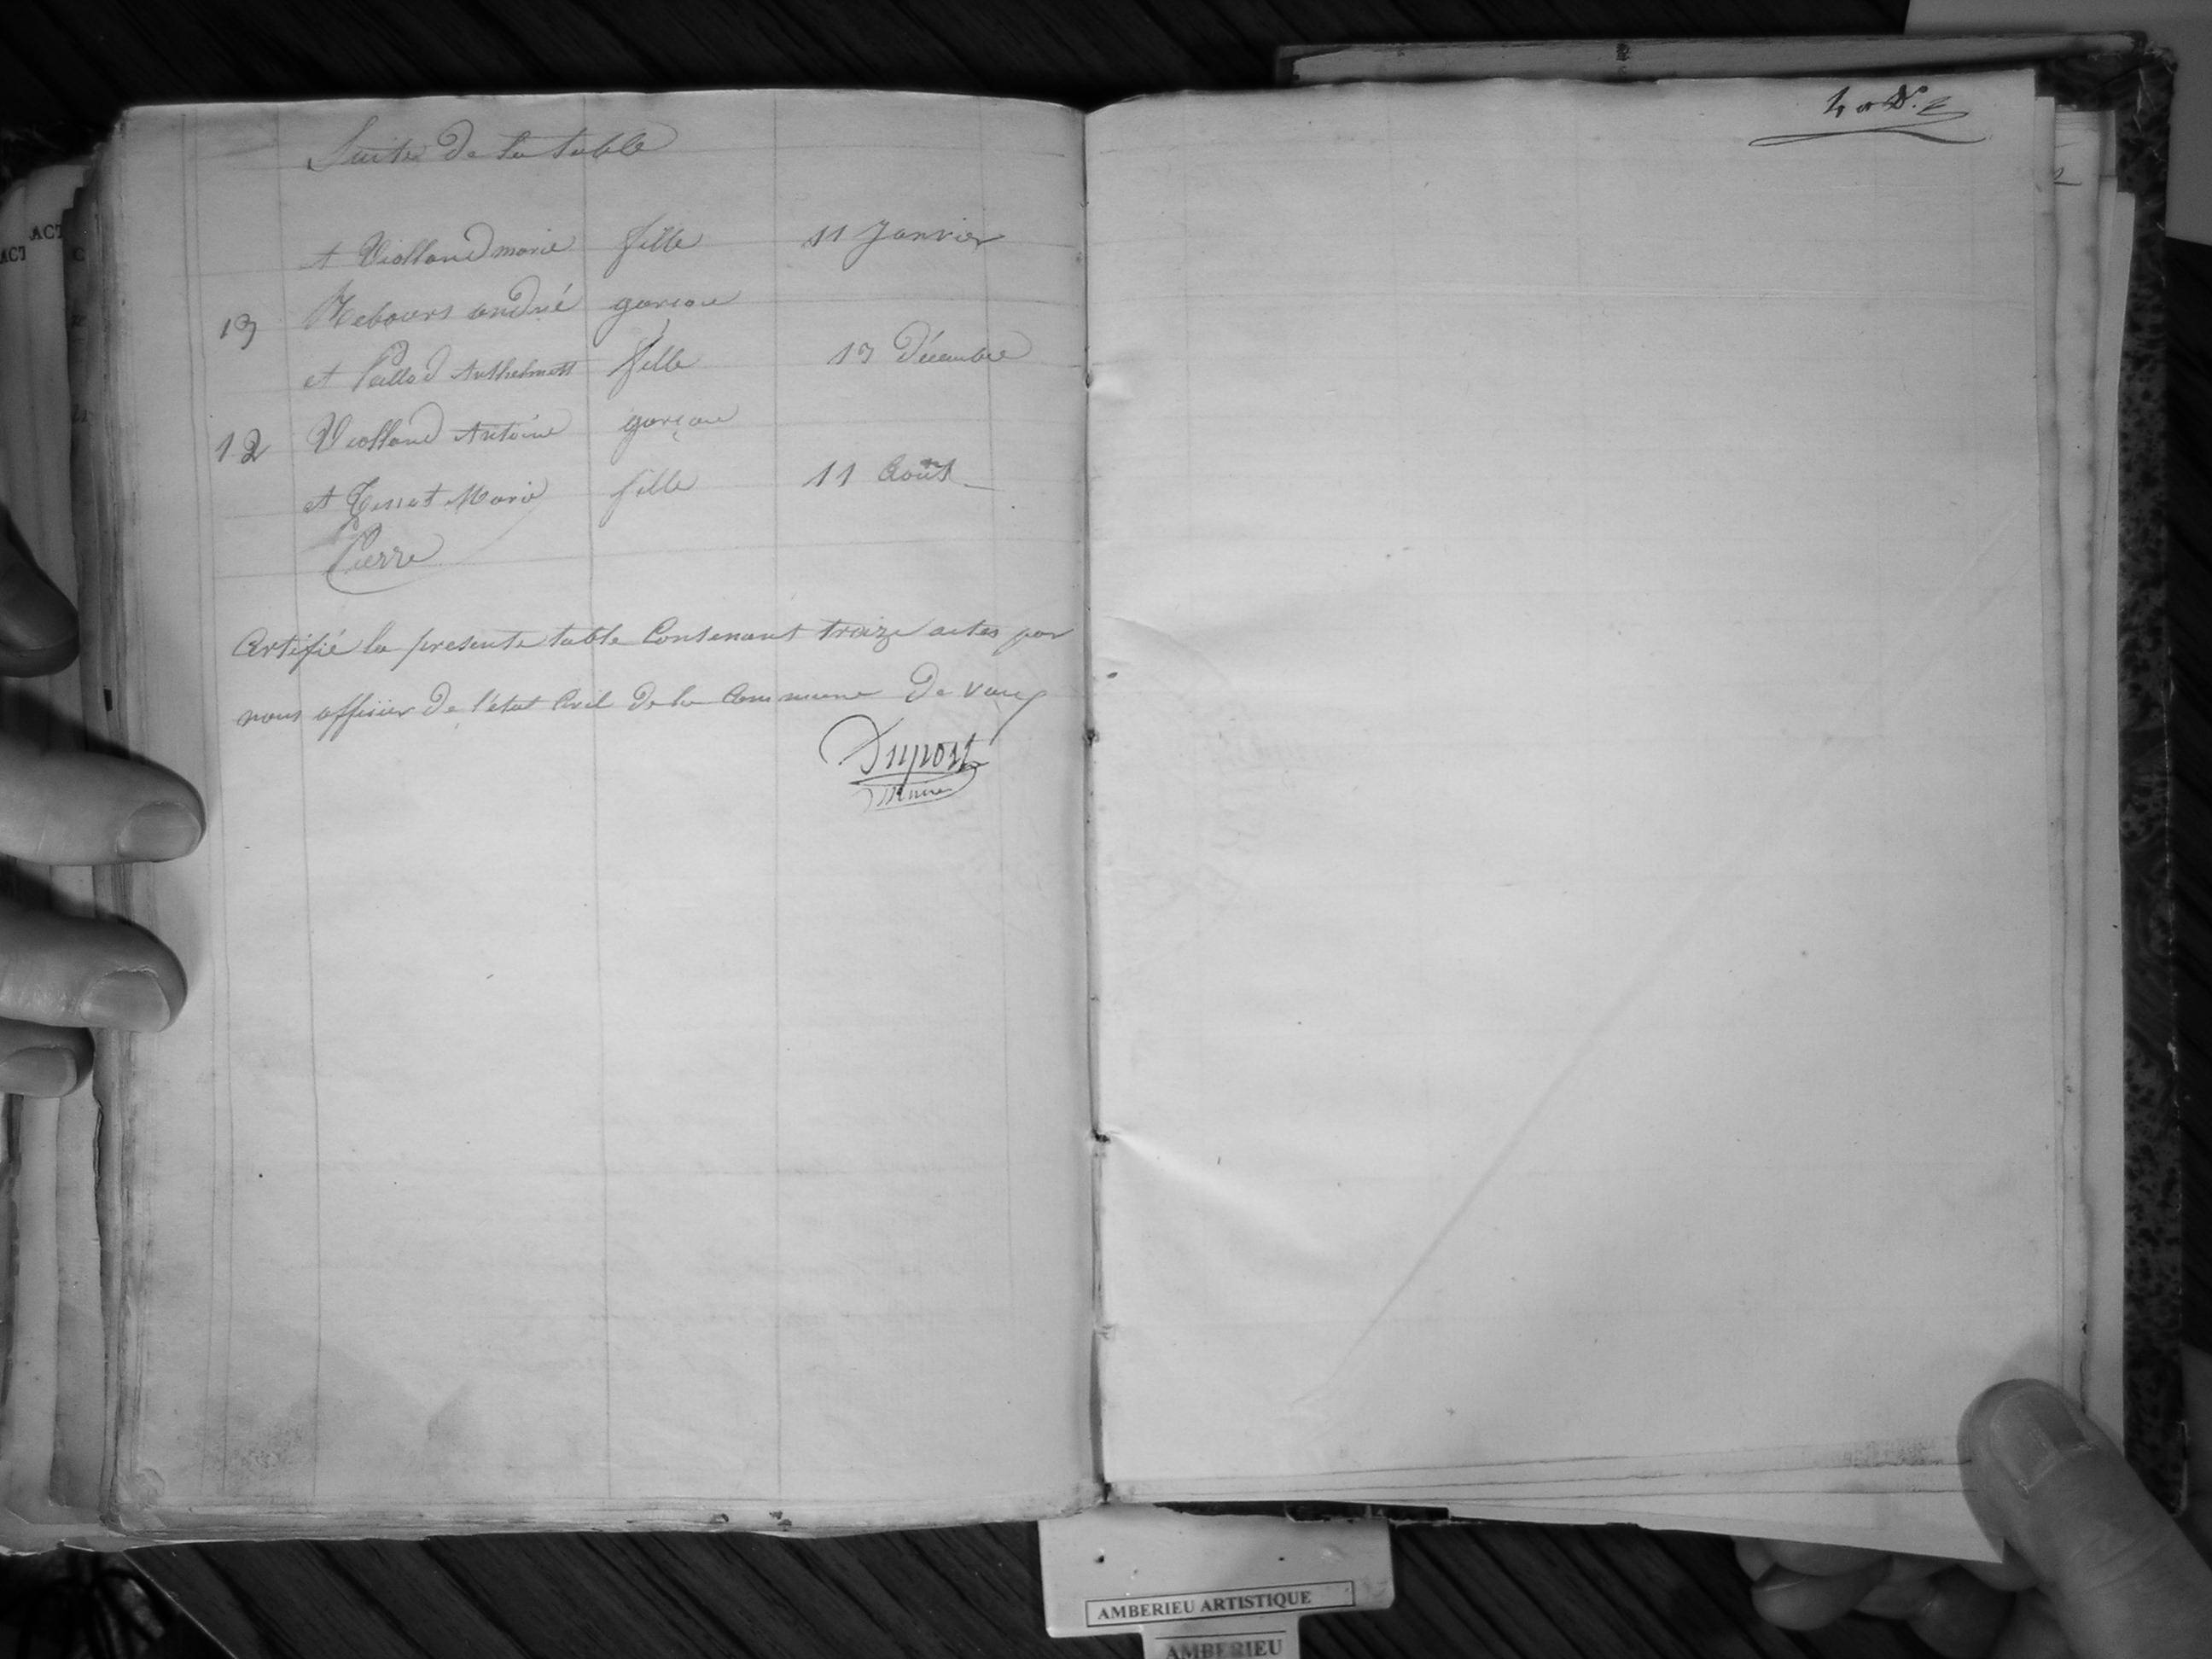 Suite de la table
et Violland marie fille 11 Janvier
13 Rebours andré garçon
et Paillod Anthelmette fille 13 Décembre
12 Violland Antoine garçon
et Tenet Marie fille 11 Août
Pierre
Certifié la presente table Contenant treize actes par
nous officier de l'état Civil de la Commune de vaux
Dupost
Maire
ACT
ACT
AMBERIEU ARTISTIQUE
AMBERIEU